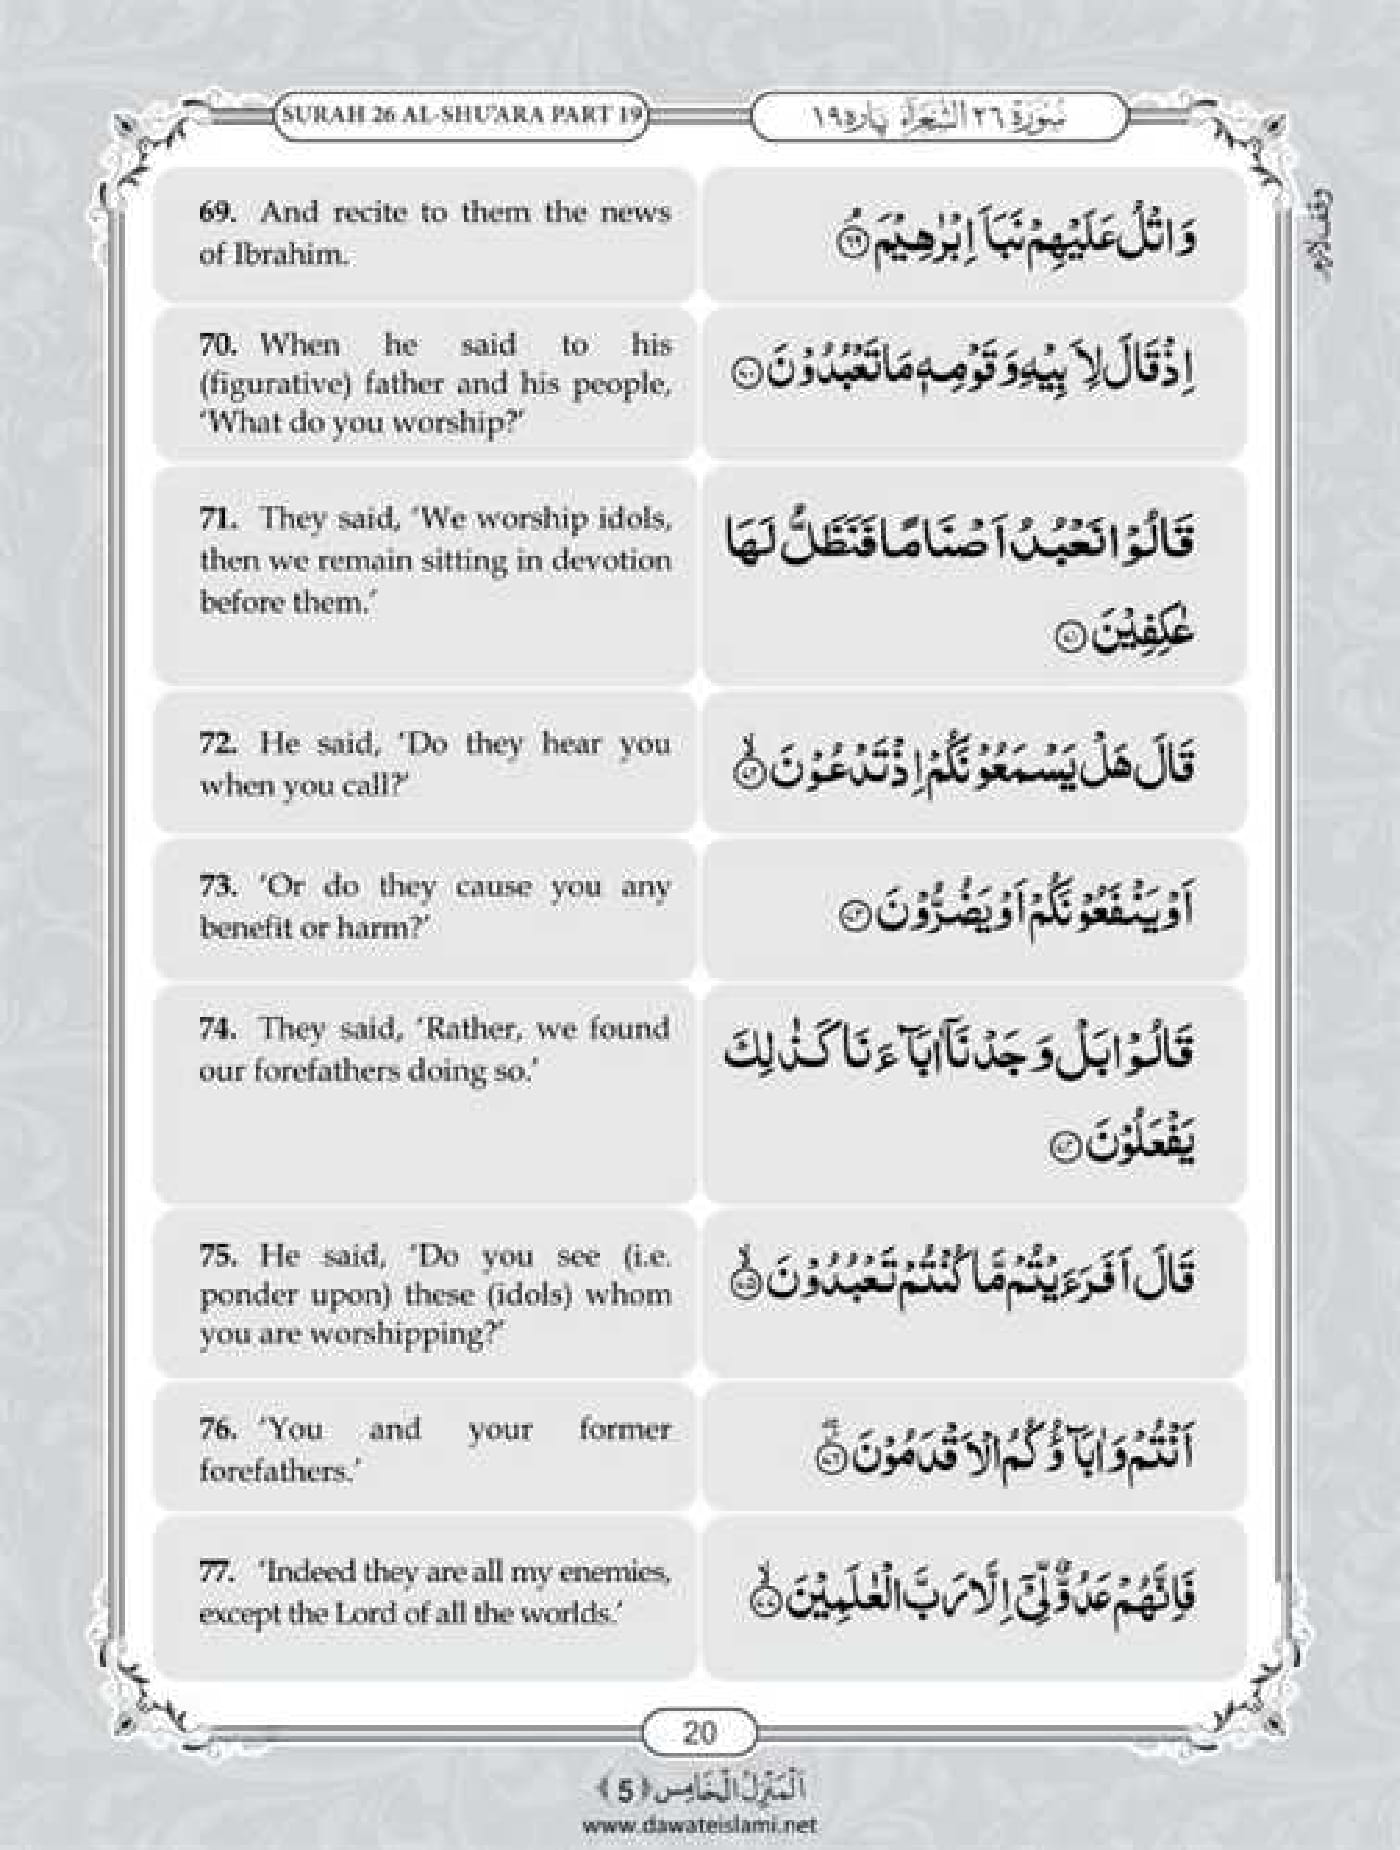 SURAH 26 AL-SHU'ARA PART 19
سُوْرَۃ ٢٦ الشُّعَرَآء پارہ ١٩
وقف لازم
69. And recite to them the news
of Ibrahim.
وَاتْلُ عَلَيْهِمْ نَبَاَ اِبْرٰهِيْمَ ۘ ﴿٦٩﴾
70. When he said to his
(figurative) father and his people,
‘What do you worship?’
اِذْ قَالَ لِاَبِيْهِ وَقَوْمِهٖ مَا تَعْبُدُوْنَ ﴿٧٠﴾
71. They said, ‘We worship idols,
then we remain sitting in devotion
before them.’
قَالُوْا نَعْبُدُ اَصْنَامًا فَنَظَلُّ لَهَا
عٰكِفِيْنَ ﴿٧١﴾
72. He said, ‘Do they hear you
when you call?’
قَالَ هَلْ يَسْمَعُوْنَكُمْ اِذْ تَدْعُوْنَ ۙ ﴿٧٢﴾
73. ‘Or do they cause you any
benefit or harm?’
اَوْ يَنْفَعُوْنَكُمْ اَوْ يَضُرُّوْنَ ﴿٧٣﴾
74. They said, ‘Rather, we found
our forefathers doing so.’
قَالُوْا بَلْ وَجَدْنَاۤ اٰبَآءَنَا كَذٰلِكَ
يَفْعَلُوْنَ ﴿٧٤﴾
75. He said, ‘Do you see (i.e.
ponder upon) these (idols) whom
you are worshipping?’
قَالَ اَفَرَءَيْتُمْ مَّا كُنْتُمْ تَعْبُدُوْنَ ۙ ﴿٧٥﴾
76. ‘You and your former
forefathers.’
اَنْتُمْ وَاٰبَآؤُكُمُ الْاَقْدَمُوْنَ ﴿٧٦﴾
77. ‘Indeed they are all my enemies,
except the Lord of all the worlds.’
فَاِنَّهُمْ عَدُوٌّ لِّيْۤ اِلَّا رَبَّ الْعٰلَمِيْنَ ۙ ﴿٧٧﴾
20
اَلْمَنْزِلُ الْخَامِس ﴿5﴾
www.dawateislami.net